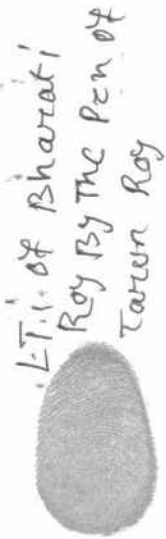 L.T.i. of Bharati
Roy By The Pen of
Tarun Roy